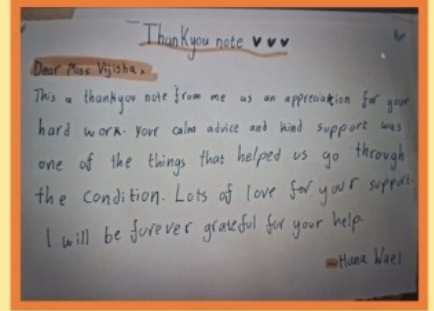 Thankyou note ♥♥♥
Dear Miss Vijisha,
This a thankyou note from me as an appreciation for your
hard work. your calm advice and kind support was
one of the things that helped us go through
the condition. Lots of love for your support.
I will be forever grateful for your help
Hana Wael